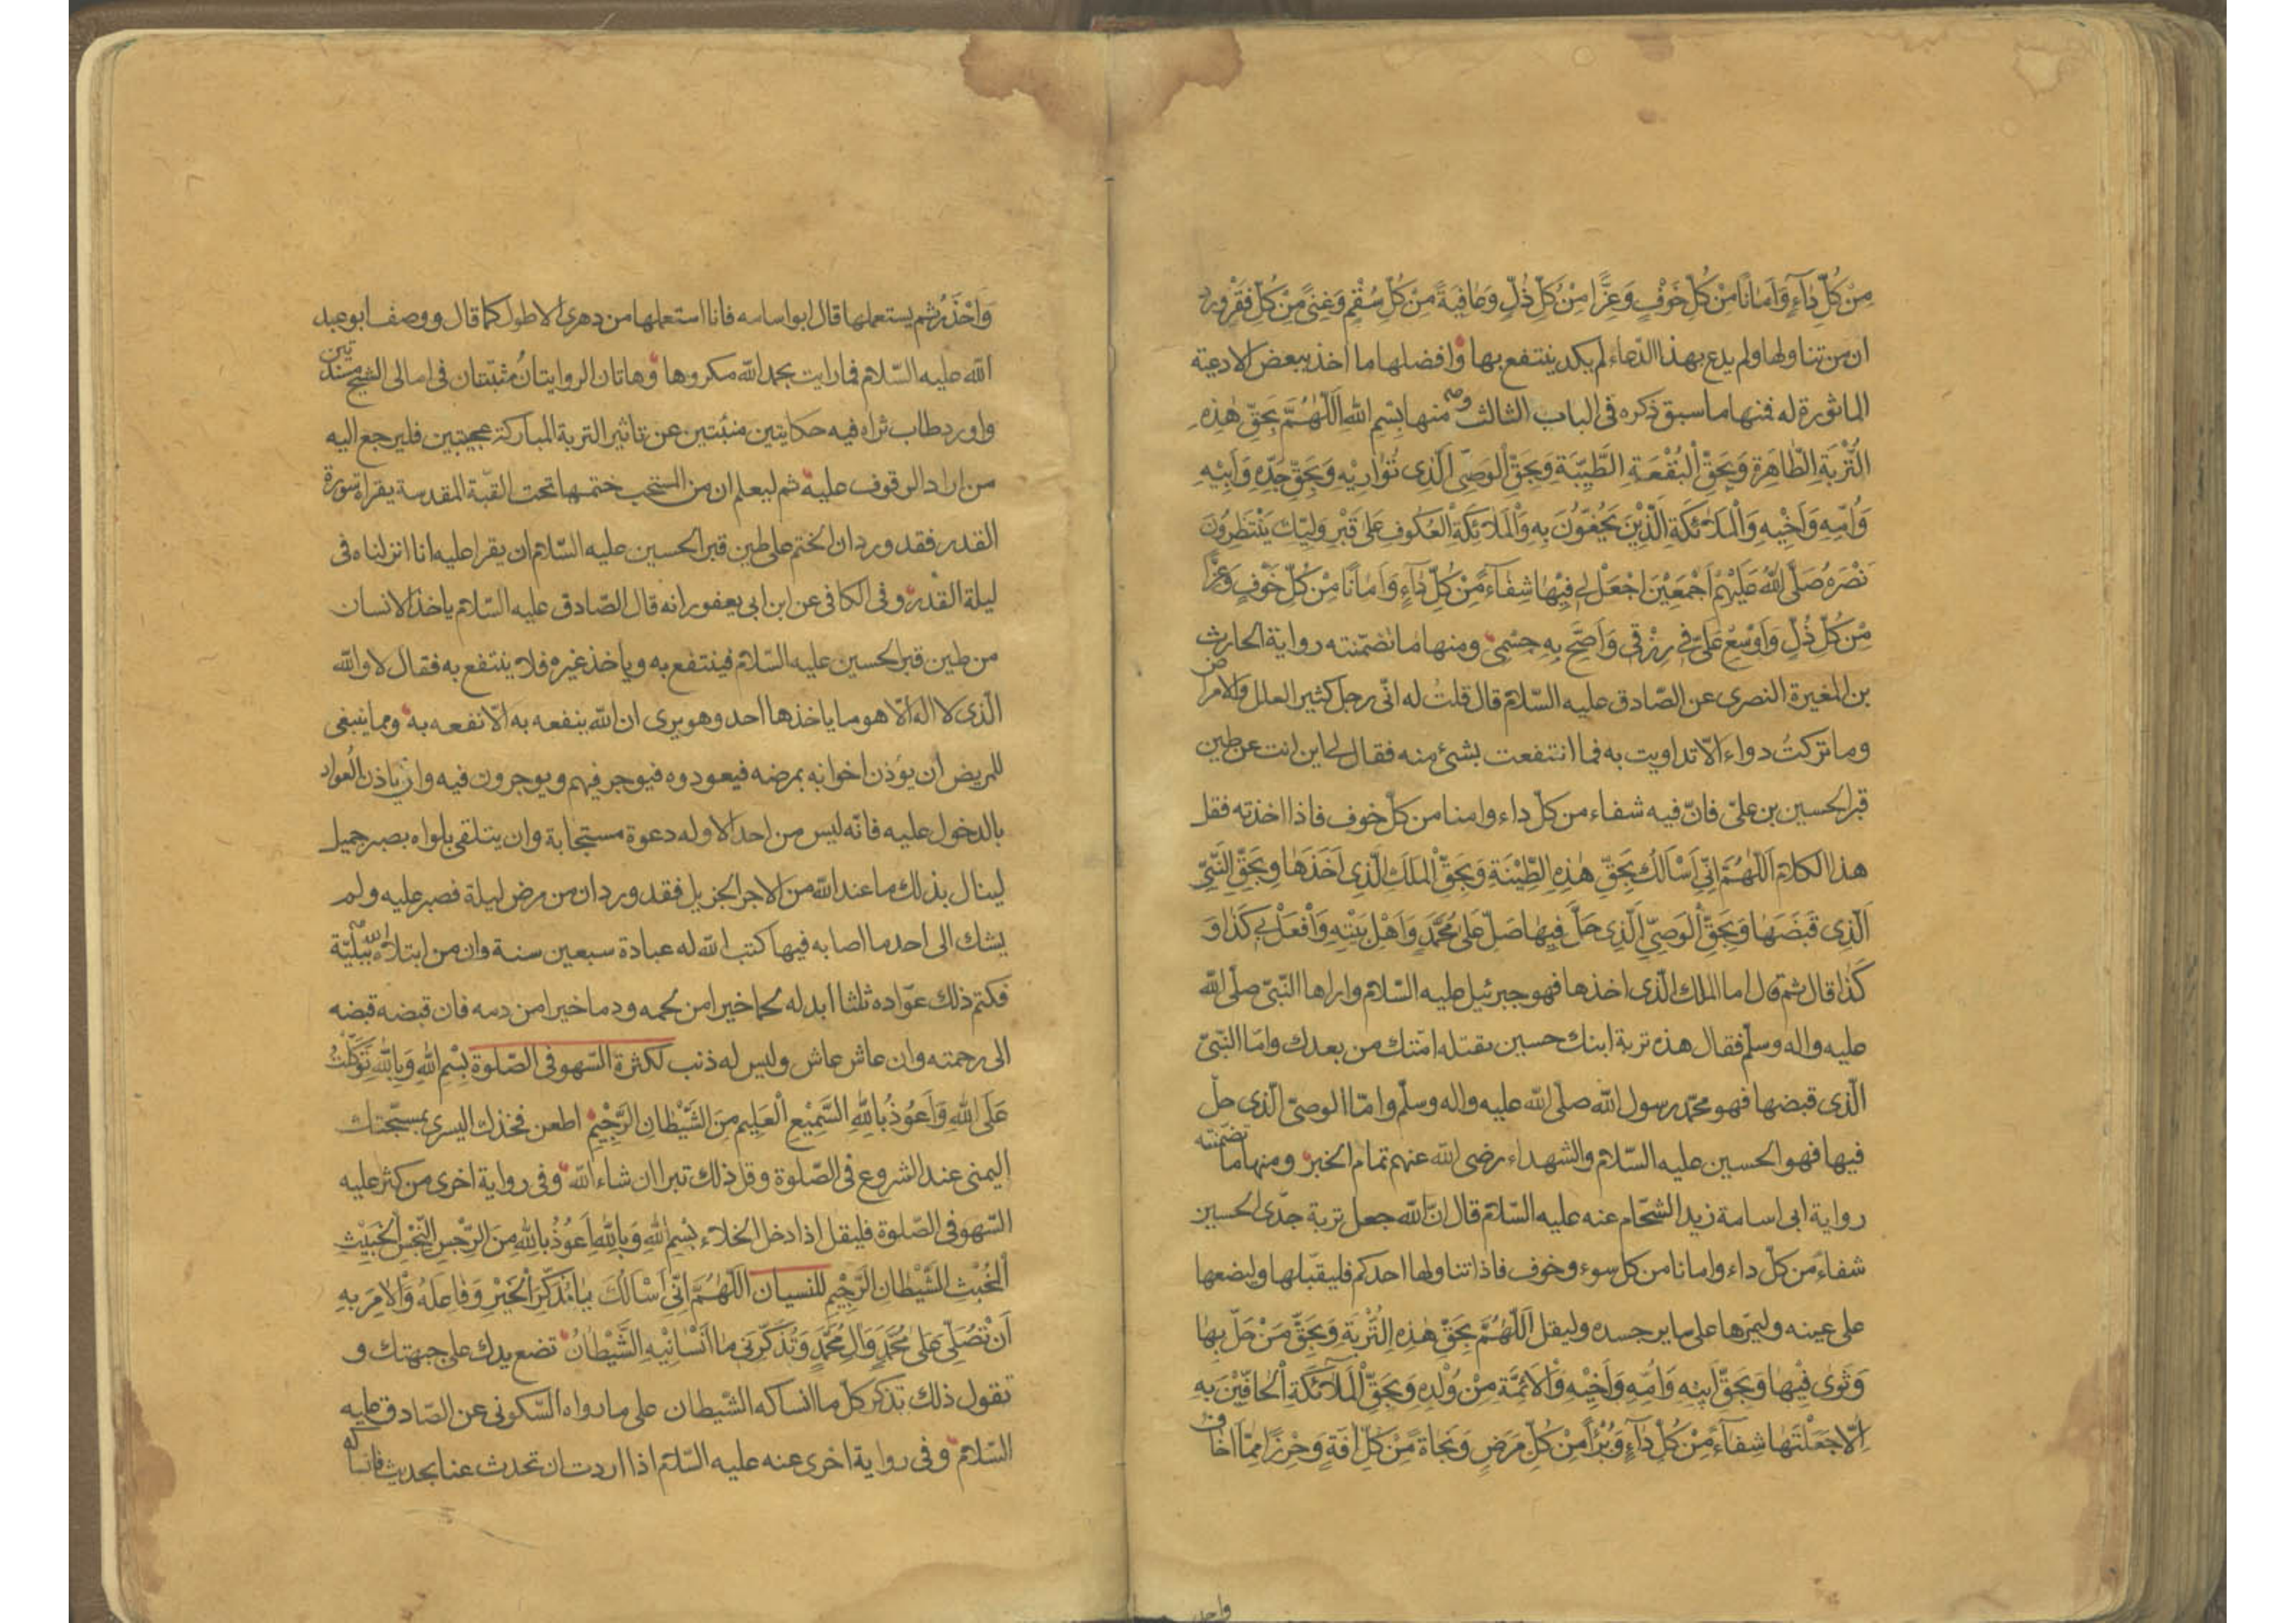 مِنْ كُلِّ دَآءٍ وَاَمَانًا مِنْ كُلِّ خَوْفٍ وَعِزًّا مِنْ كُلِّ ذُلٍّ وَعَافِيَةً مِنْ كُلِّ سُقْمٍ وَغِنًى مِنْ كُلِّ فَقْرٍ وورد
ان من تناولها ولم يدع بهذا الدّعاء لم يكد ينتفع بها وافضلها ما اخذ ببعض الادعية
الماثورة له فمنها ما سبق ذكره فى الباب الثالث ومنها بِسْمِ اللّٰهِ اَللّٰهُمَّ بِحَقِّ هٰذِهِ
التُّرْبَةِ الطَّاهِرَةِ وَبِحَقِّ الْبُقْعَةِ الطَّيِّبَةِ وَبِحَقِّ الْوَصِىِّ الَّذِى تُوَارِيْهِ وَبِحَقِّ جَدِّهِ وَاَبِيْهِ
وَاُمِّهِ وَاَخِيْهِ وَالْمَلَائِكَةِ الَّذِيْنَ يَحُفُّوْنَ بِهِ وَالْمَلَائِكَةِ الْعُكُوفِ عَلٰى قَبْرِ وَلِيِّكَ يَنْتَظِرُوْنَ
نَصْرَهُ صَلَّى اللّٰهُ عَلَيْهِمْ اَجْمَعِيْنَ اجْعَلْ لِى فِيْهَا شِفَآءً مِنْ كُلِّ دَآءٍ وَاَمَانًا مِنْ كُلِّ خَوْفٍ وَعِزًّا
مِنْ كُلِّ ذُلٍّ وَاَوْسِعْ عَلَىَّ فِى رِزْقِى وَاَصِحَّ بِهِ جِسْمِى ومنها ما تضمّنته رواية الحارث
بن المغيرة النصرى عن الصّادق عليه السّلام قال قلتُ له انّى رجل كثير العلل والامراض
وما تركتُ دواء الّا تداويت به فما انتفعت بشئ منه فقال لى اين انت عن طين
قبر الحسين بن علىّ فانّ فيه شفاء من كلّ داء وامنا من كلّ خوف فاذا اخذته فقل
هذا الكلام اَللّٰهُمَّ اِنِّى اَسْاَلُكَ بِحَقِّ هٰذِهِ الطِّيْنَةِ وَبِحَقِّ الْمَلَكِ الَّذِى اَخَذَهَا وَبِحَقِّ النَّبِىِّ
الَّذِى قَبَضَهَا وَبِحَقِّ الْوَصِىِّ الَّذِى حَلَّ فِيهَا صَلِّ عَلٰى مُحَمَّدٍ وَاَهْلِ بَيْتِهِ وَافْعَلْ بِى كَذَا وَ
كَذَا قال ثم قال اما الملك الّذى اخذها فهو جبرئيل عليه السّلام واراها النّبىّ صلّى اللّه
عليه واله وسلّم فقال هذه تربة ابنك حسين يقتله امّتك من بعدك وامّا النّبىّ
الّذى قبضها فهو محمّد رسول اللّه صلّى اللّه عليه واله وسلّم وامّا الوصىّ الّذى حلّ
فيها فهو الحسين عليه السّلام والشهداء رضى اللّه عنهم تمام الخبر ومنها ما تضمّنته
رواية ابى اسامة زيد الشحّام عنه عليه السّلام قال انّ اللّه جعل تربة جدّى الحسين
شفاءً من كلّ داء وامانا من كل سوء وخوف فاذا تناولها احدكم فليقبّلها وليضعها
على عينه وليمّرها على ساير جسده وليقل اَللّٰهُمَّ بِحَقِّ هٰذِهِ التُّرْبَةِ وَبِحَقِّ مَنْ حَلَّ بِهَا
وَثَوٰى فِيْهَا وَبِحَقِّ اَبِيْهِ وَاُمِّهِ وَاَخِيْهِ وَالْاَئِمَّةِ مِنْ وُلْدِهِ وَبِحَقِّ الْمَلَآئِكَةِ الْحَافِّيْنَ بِهِ
اِلَّا جَعَلْتَهَا شِفَآءً مِنْ كُلِّ دَآءٍ وَبُرْاً مِنْ كُلِّ مَرَضٍ وَنَجَاةً مِنْ كُلِّ اٰفَةٍ وَحِرْزًا مِمَّا اَخَافُ
واحذر
وَاَحْذَرُ ثم يستعملها قال ابو اسامه فانا استعملها من دهرى الاطول كما قال ووصف ابو عبد
اللّه عليه السّلام فما رايت بحمد اللّه مكروها وهاتان الروايتان مثبتتان فى امالى الشيخ مسندتين
واورد طاب ثراه فيه حكايتين منبئتين عن تاثير التربة المباركة عجيبتين فليرجع اليه
من اراد الوقوف عليه ثم ليعلم ان من المستحب ختمها تحت القبّة المقدسة يقراءة سورة
القدر فقد ورد ان الختم على طين قبر الحسين عليه السّلام ان يقرا عليه انا انزلناه فى
ليلة القدر وفى الكافى عن ابن ابى يعفور انه قال الصّادق عليه السّلام ياخذ الانسان
من طين قبر الحسين عليه السّلام فينتفع به وياخذ غيره فلا ينتفع به فقال لا واللّه
الّذى لا اله الّا هو ما ياخذها احد وهو يرى ان اللّه ينفعه به الّا نفعه به ومما ينبغى
للمريض ان يؤذن اخوانه بمرضه فيعودوه فيوجر فيهم ويوجرون فيه وان ياذن العواد
بالدخول عليه فانّه ليس من احد الا وله دعوة مستجابة وان يتلقى بلواه بصبر جميل
لينال بذلك ما عند اللّه من الاجر الجزيل فقد ورد ان من مرض ليلة فصبر عليه ولم
يشك الى احد ما اصابه فيها كتب اللّه له عبادة سبعين سنة وان من ابتلاه اللّه ببليّة
فكتم ذلك عوّاده ثلثا ابدله لحما خيرا من لحمه ودما خيرا من دمه فان قبضه قبضه
الى رحمته وان عاش عاش وليس له ذنب لكثرة السّهو فى الصّلوة بِسْمِ اللّٰهِ وَبِاللّٰهِ تَوَكَّلْتُ
عَلَى اللّٰهِ وَاَعُوْذُ بِاللّٰهِ السَّمِيْعِ الْعَلِيمِ مِنَ الشَّيْطَانِ الرَّجِيْمِ اطعن فخذك اليسرى بمسبّحتك
اليمنى عند الشروع فى الصّلوة وقل ذلك تبرا ان شاء اللّه وفى رواية اخرى من كثر عليه
السّهو فى الصّلوة فليقل اذا دخل الخلاء بِسْمِ اللّٰهِ وَبِاللّٰهِ اَعُوْذُ بِاللّٰهِ مِنَ الرِّجْسِ النِّجْسِ الْخَبِيْثِ
الْخُبْثِ الشَّيْطَانِ الرَّجِيْمِ للنسيان اَللّٰهُمَّ اِنِّى اَسْاَلُكَ يَا مُذَكِّرَ الْخَيْرِ وَفَاعِلَهُ وَالْاٰمِرَ بِهِ
اَنْ تُصَلِّىَ عَلٰى مُحَمَّدٍ وَاٰلِ مُحَمَّدٍ وَتُذَكِّرَنِى مَا اَنْسَانِيْهِ الشَّيْطَانُ تضع يدك على جبهتك و
تقول ذلك تذكر كلّ ما انساكه الشيطان على ما رواه السّكونى عن الصّادق عليه
السّلام وفى رواية اخرى عنه عليه السّلام اذا اردت ان تحدث عنا بحديث فانساكه